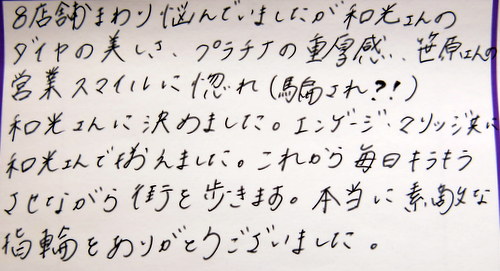 8店舗まわり悩んでいましたが和光さんの
ダイヤの美しさ、プラチナの重厚感、笹原さんの
営業スマイルに惚れ(騙され?!)
和光さんに決めました。エンゲージ、マリッジ共に
和光さんで揃えました。これから毎日キラキラ
させながら街を歩きます。本当に素敵な
指輪をありがとうございました。